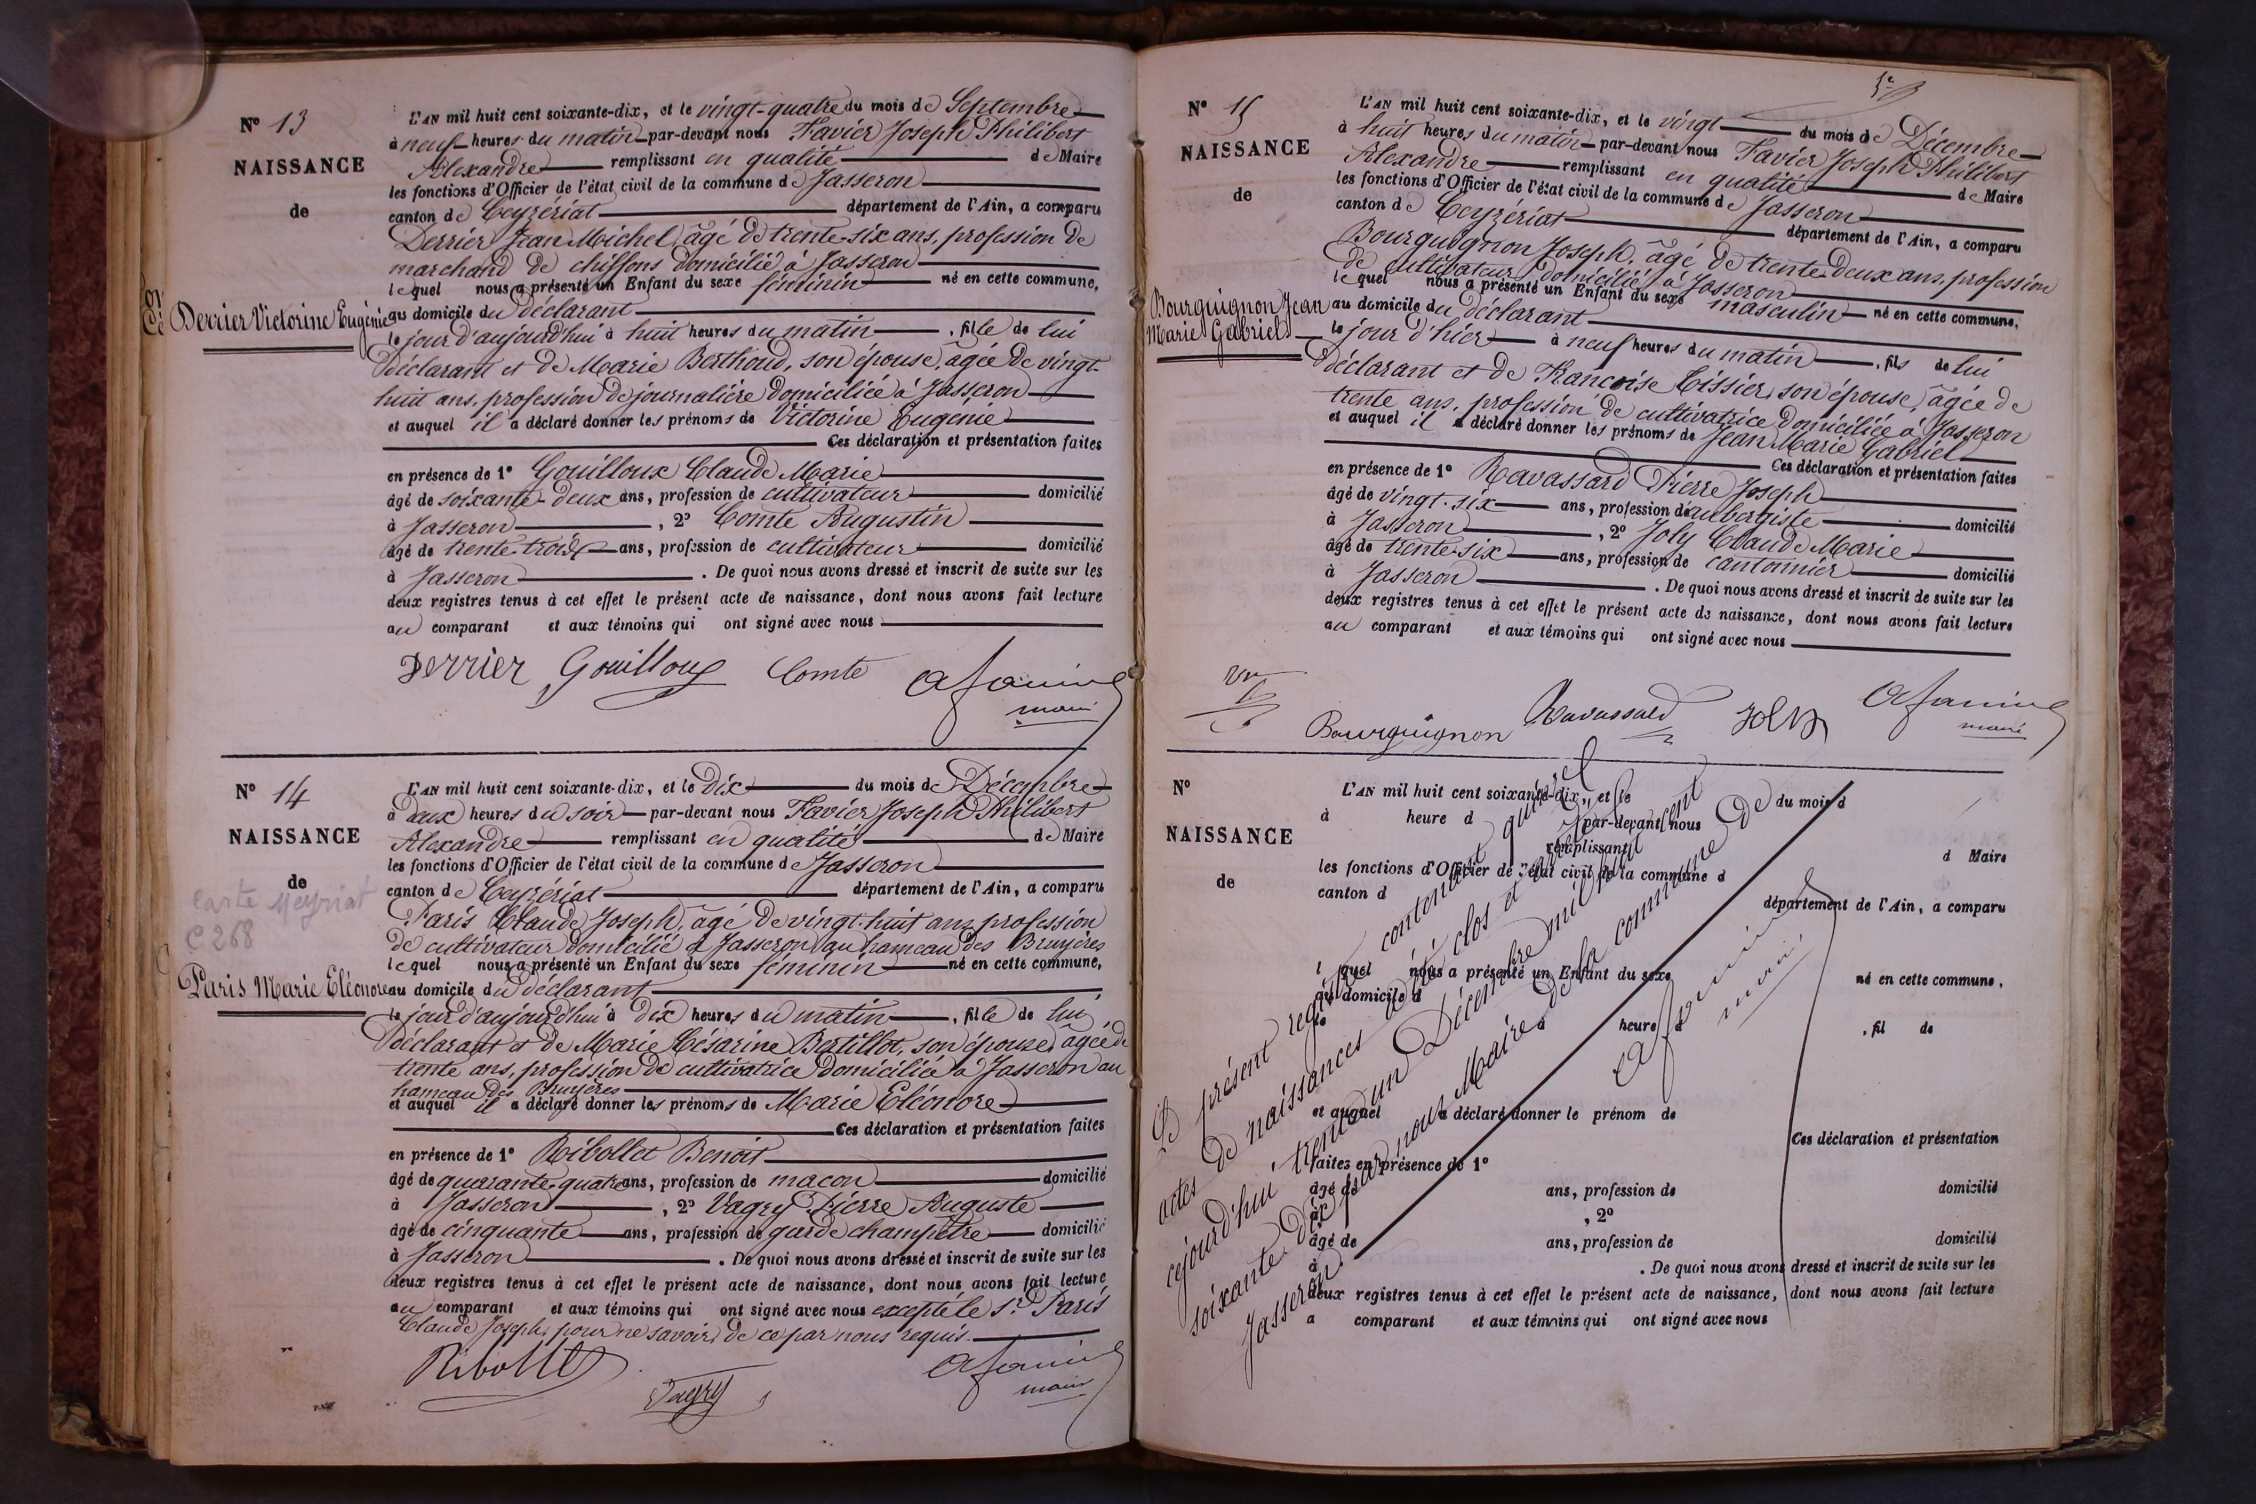 N° 13
NAISSANCE
de
Derrier Victorine Eugénie
L'AN mil huit cent soixante-dix, et le vingt-quatre du mois de Septembre
à neuf heures du matin par-devant nous Favier Joseph Philibert
Alexandre remplissant en qualité de Maire
les fonctions d'Officier de l'état civil de la commune de Jasseron
canton de Ceyzériat département de l'Ain, a comparu
Derrier Jean Michel, âgé de trente-six ans, profession de
marchand de chiffons domicilié à Jasseron
lequel nous a présenté un Enfant du sexe féminin né en cette commune,
au domicile du déclarant
le jour d'aujourd'hui à huit heures du matin, fille de lui
déclarant et de Marie Berthoud, son épouse, âgée de vingt-
huit ans, profession de journalière domiciliée à Jasseron
et auquel il a déclaré donner les prénoms de Victorine Eugénie
Ces déclaration et présentation faites
en présence de 1° Gouilloux Claude Marie
âgé de soixante-deux ans, profession de cultivateur domicilié
à Jasseron, 2° Comte Augustin
âgé de trente-trois ans, profession de cultivateur domicilié
à Jasseron. De quoi nous avons dressé et inscrit de suite sur les
deux registres tenus à cet effet le présent acte de naissance, dont nous avons fait lecture
au comparant et aux témoins qui ont signé avec nous
Derrier Gouilloux Comte A favier
maire
N° 14
NAISSANCE
de
Carte Meyriat
C 268
Paris Marie Eléonore
L'AN mil huit cent soixante-dix, et le Dix du mois de Décembre
à deux heures du soir par-devant nous Favier Joseph Philibert
Alexandre remplissant en qualité de Maire
les fonctions d'Officier de l'état civil de la commune de Jasseron
canton de Ceyzériat département de l'Ain, a comparu
Paris Claude Joseph, âgé de vingt-huit ans, profession
de cultivateur domicilié à Jasseron au hameau des Bruyères
lequel nous a présenté un Enfant du sexe féminin né en cette commune,
au domicile du déclarant
le jour d'aujourd'hui à dix heures du matin, fille de lui
déclarant et de Marie Césarine Bertillot, son épouse, âgée de
trente ans, profession de cultivatrice domiciliée à Jasseron au
hameau des Bruyères
et auquel il a déclaré donner les prénoms de Marie Eléonore
Ces déclaration et présentation faites
en présence de 1° Ribollet Benoit
âgé de quarante-quatre ans, profession de maçon domicilié
à Jasseron, 2° Vagry Pierre Auguste
âgé de cinquante ans, profession de garde champêtre domicilié
à Jasseron. De quoi nous avons dressé et inscrit de suite sur les
deux registres tenus à cet effet le présent acte de naissance, dont nous avons fait lecture
au comparant et aux témoins qui ont signé avec nous excepté le Sr Paris
Claude Joseph, pour ne savoir, de ce par nous requis.
Ribollet Vagry A favier
maire
N° 15
NAISSANCE
de
Bourguignon Jean
Marie Gabriel
L'AN mil huit cent soixante-dix, et le vingt du mois de Décembre
à huit heures du matin par-devant nous Favier Joseph Philibert
Alexandre remplissant en qualité de Maire
les fonctions d'Officier de l'état civil de la commune de Jasseron
canton de Ceyzériat département de l'Ain, a comparu
Bourguignon Joseph, âgé de trente-deux ans, profession
de cultivateur domicilié à Jasseron
lequel nous a présenté un Enfant du sexe masculin né en cette commune,
au domicile du déclarant
le jour d'hier à neuf heures du matin, fils de lui
déclarant et de Françoise Tissier, son épouse, âgée de
trente ans, profession de cultivatrice domiciliée à Jasseron
et auquel il a déclaré donner les prénoms de Jean Marie Gabriel
Ces déclaration et présentation faites
en présence de 1° Ravassard Pierre Joseph
âgé de vingt-six ans, profession d'aubergiste domicilié
à Jasseron, 2° Joly Claude Marie
âgé de trente-six ans, profession de cantonnier domicilié
à Jasseron. De quoi nous avons dressé et inscrit de suite sur les
deux registres tenus à cet effet le présent acte de naissance, dont nous avons fait lecture
au comparant et aux témoins qui ont signé avec nous
Bourguignon Ravassard Joly A favier
maire
N°
NAISSANCE
de
L'AN mil huit cent soixante-dix, et le du mois d
à heure d par-devant nous
remplissant d Maire
les fonctions d'Officier de l'état civil de la commune d
canton d département de l'Ain, a comparu
l quel nous a présenté un Enfant du sexe né en cette commune,
au domicile d
le à heure d, fil de
et auquel a déclaré donner le prénom de
Ces déclaration et présentation
faites en présence de 1°
âgé de ans, profession de domicilié
à, 2°
âgé de ans, profession de domicilié
à. De quoi nous avons dressé et inscrit de suite sur les
deux registres tenus à cet effet le présent acte de naissance, dont nous avons fait lecture
a comparant et aux témoins qui ont signé avec nous
Le présent registre contenant quinze
actes de naissances a été clos et arrêté
cejourd'hui trente un Décembre mil huit cent
soixante-dix par nous Maire de la commune de
Jasseron
A favier
maire